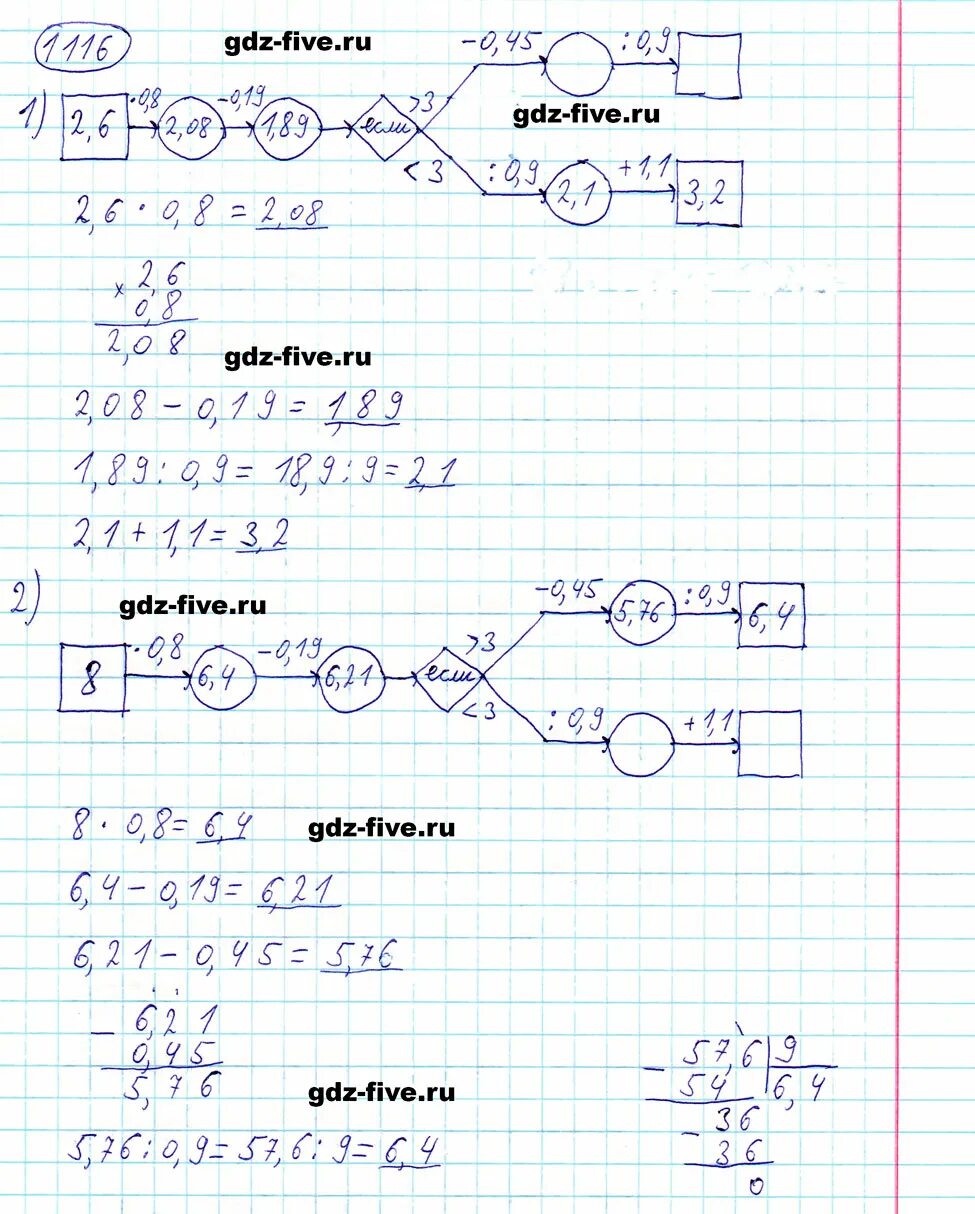 1116
gdz-five.ru
-0,45 :0,9
1) 2,6 ·0,8 2,08 -0,19 1,89 если >3
gdz-five.ru
<3 :0,9 2,1 +1,1 3,2
2,6 · 0,8 = 2,08
× 2,6
0,8
2,08
gdz-five.ru
2,08 - 0,19 = 1,89
1,89 : 0,9 = 18,9 : 9 = 2,1
2,1 + 1,1 = 3,2
2)
gdz-five.ru
-0,45 5,76 :0,9 6,4
8 ·0,8 6,4 -0,19 6,21 если >3
<3 :0,9 +1,1
8 · 0,8 = 6,4
gdz-five.ru
6,4 - 0,19 = 6,21
6,21 - 0,45 = 5,76
- 6,21
0,45
5,76
gdz-five.ru
5,76 : 0,9 = 57,6 : 9 = 6,4
- 57,6 | 9
54 | 6,4
- 36
36
0